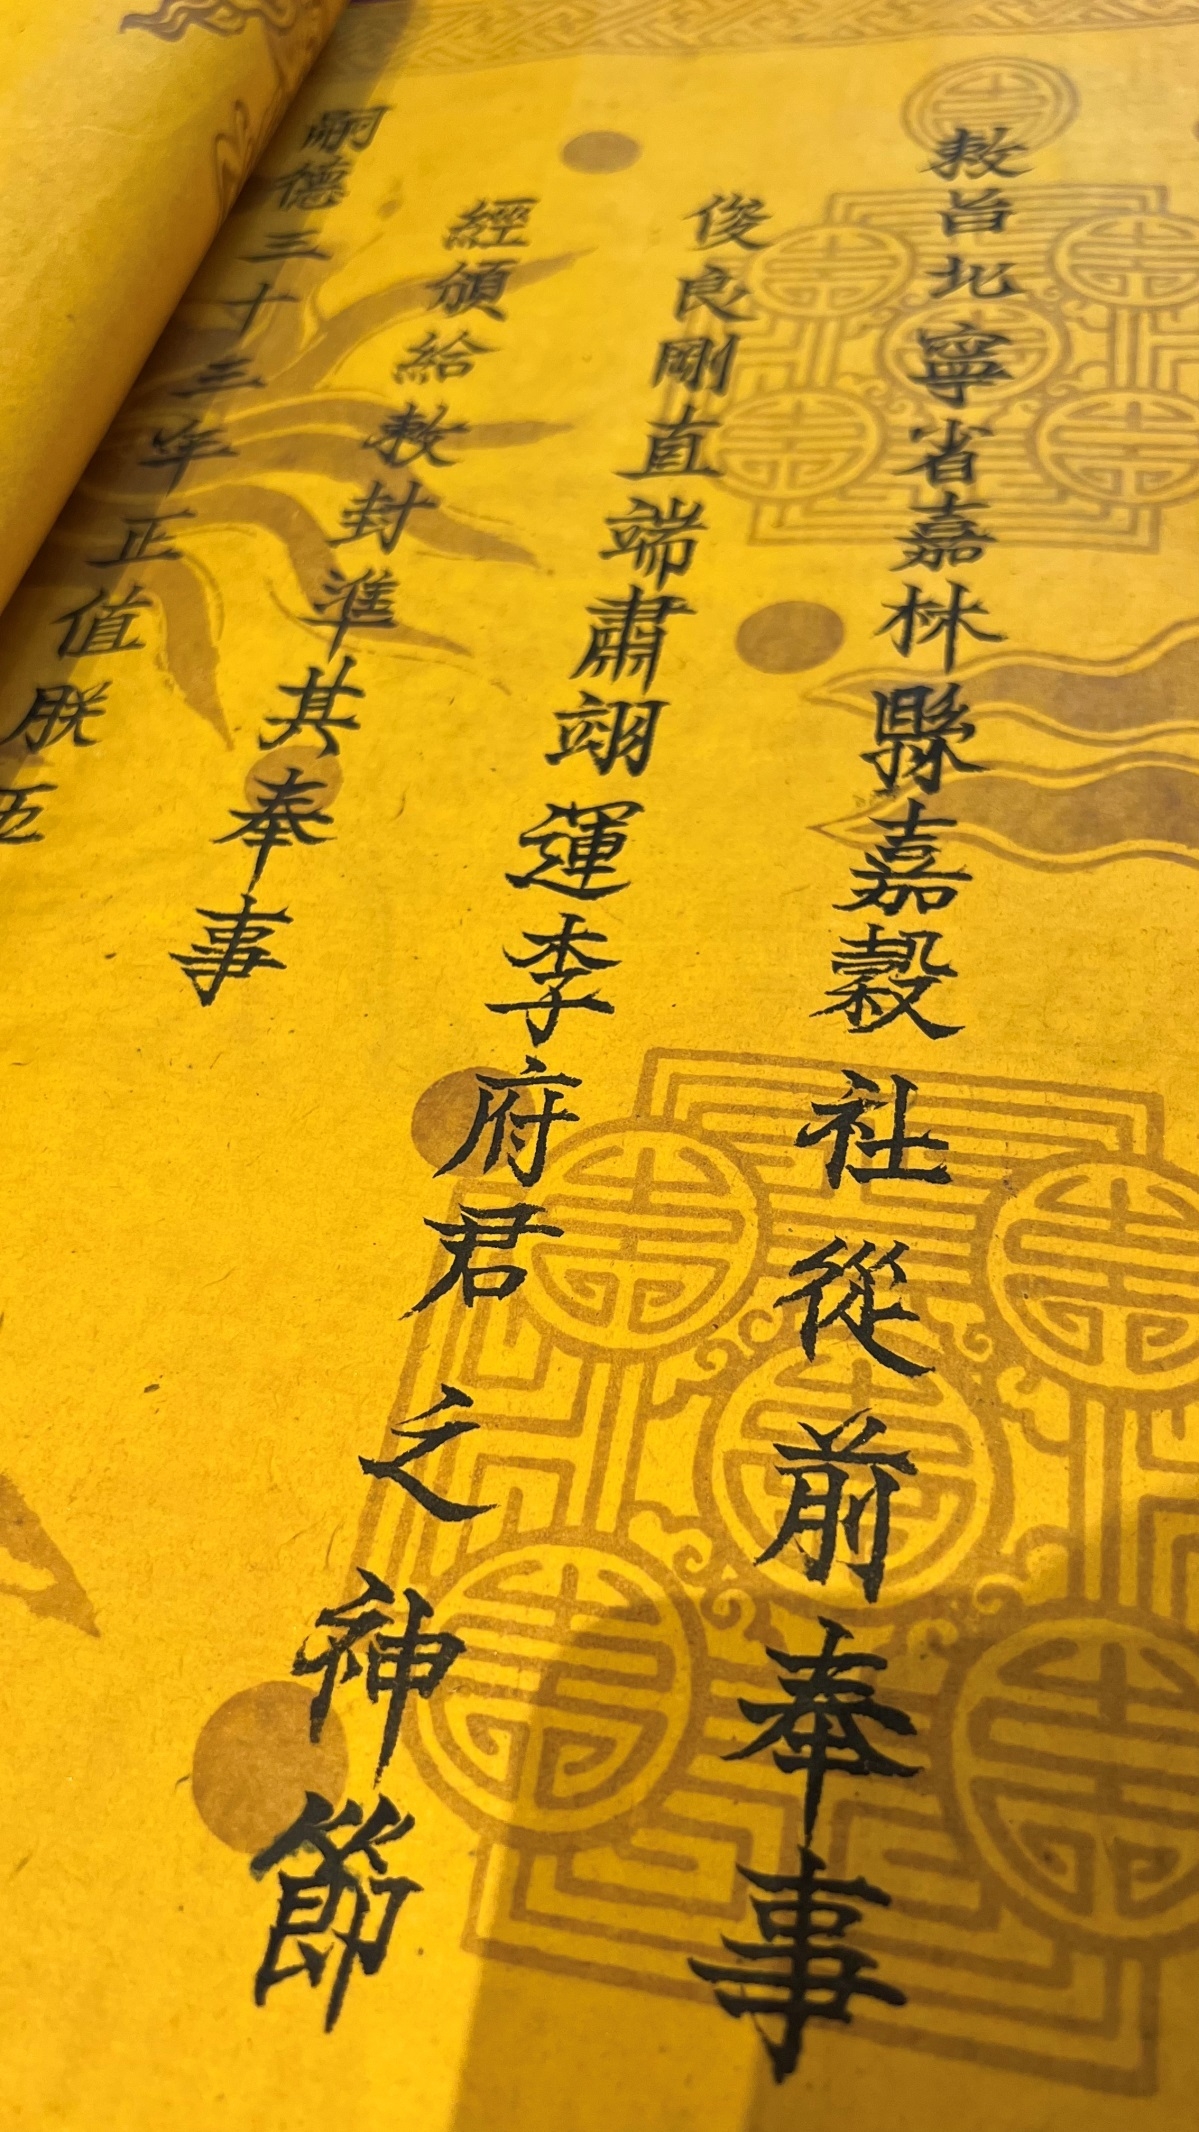 敕旨北寧省嘉林縣嘉穀社從前奉事
俊良剛直端肅翊運李府君之神節
經頒給敕封準其奉事
嗣德三十三年正值朕